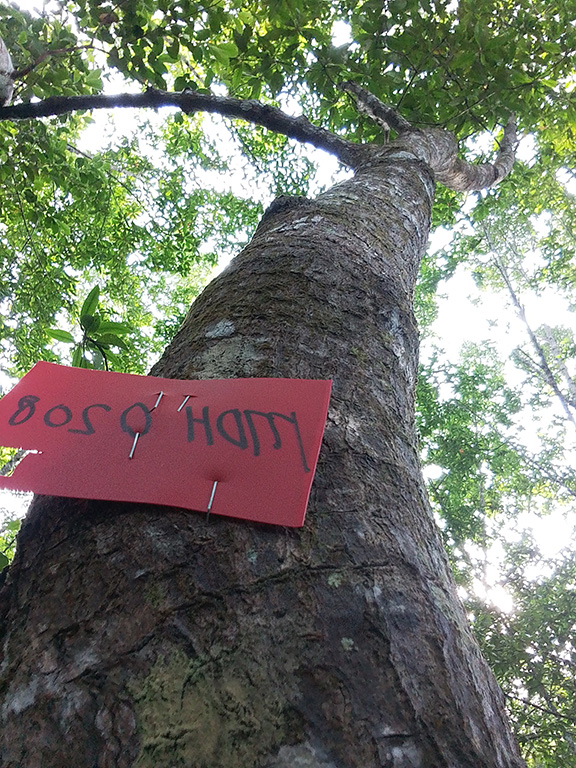 MDH 0208